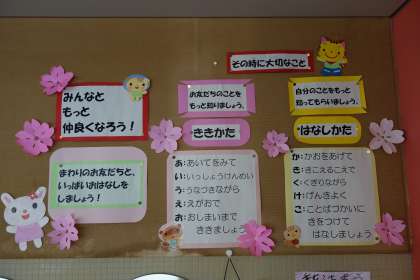 みんなと
もっと
仲良くなろう!
まわりのお友だちと、
いっぱいおはなしを
しましょう!
その時に大切なこと
お友だちのことを
もっと知りましょう。
ききかた
あ:あいてをみて
い:いっしょうけんめい
う:うなづきながら
え:えがおで
お:おしまいまで
ききましょう
自分のことをもっと
知ってもらいましょう。
はなしかた
か:かおをあげて
き:きこえるこえで
く:くぎりながら
け:げんきよく
こ:ことばづかいに
きをつけて
はなしましょう